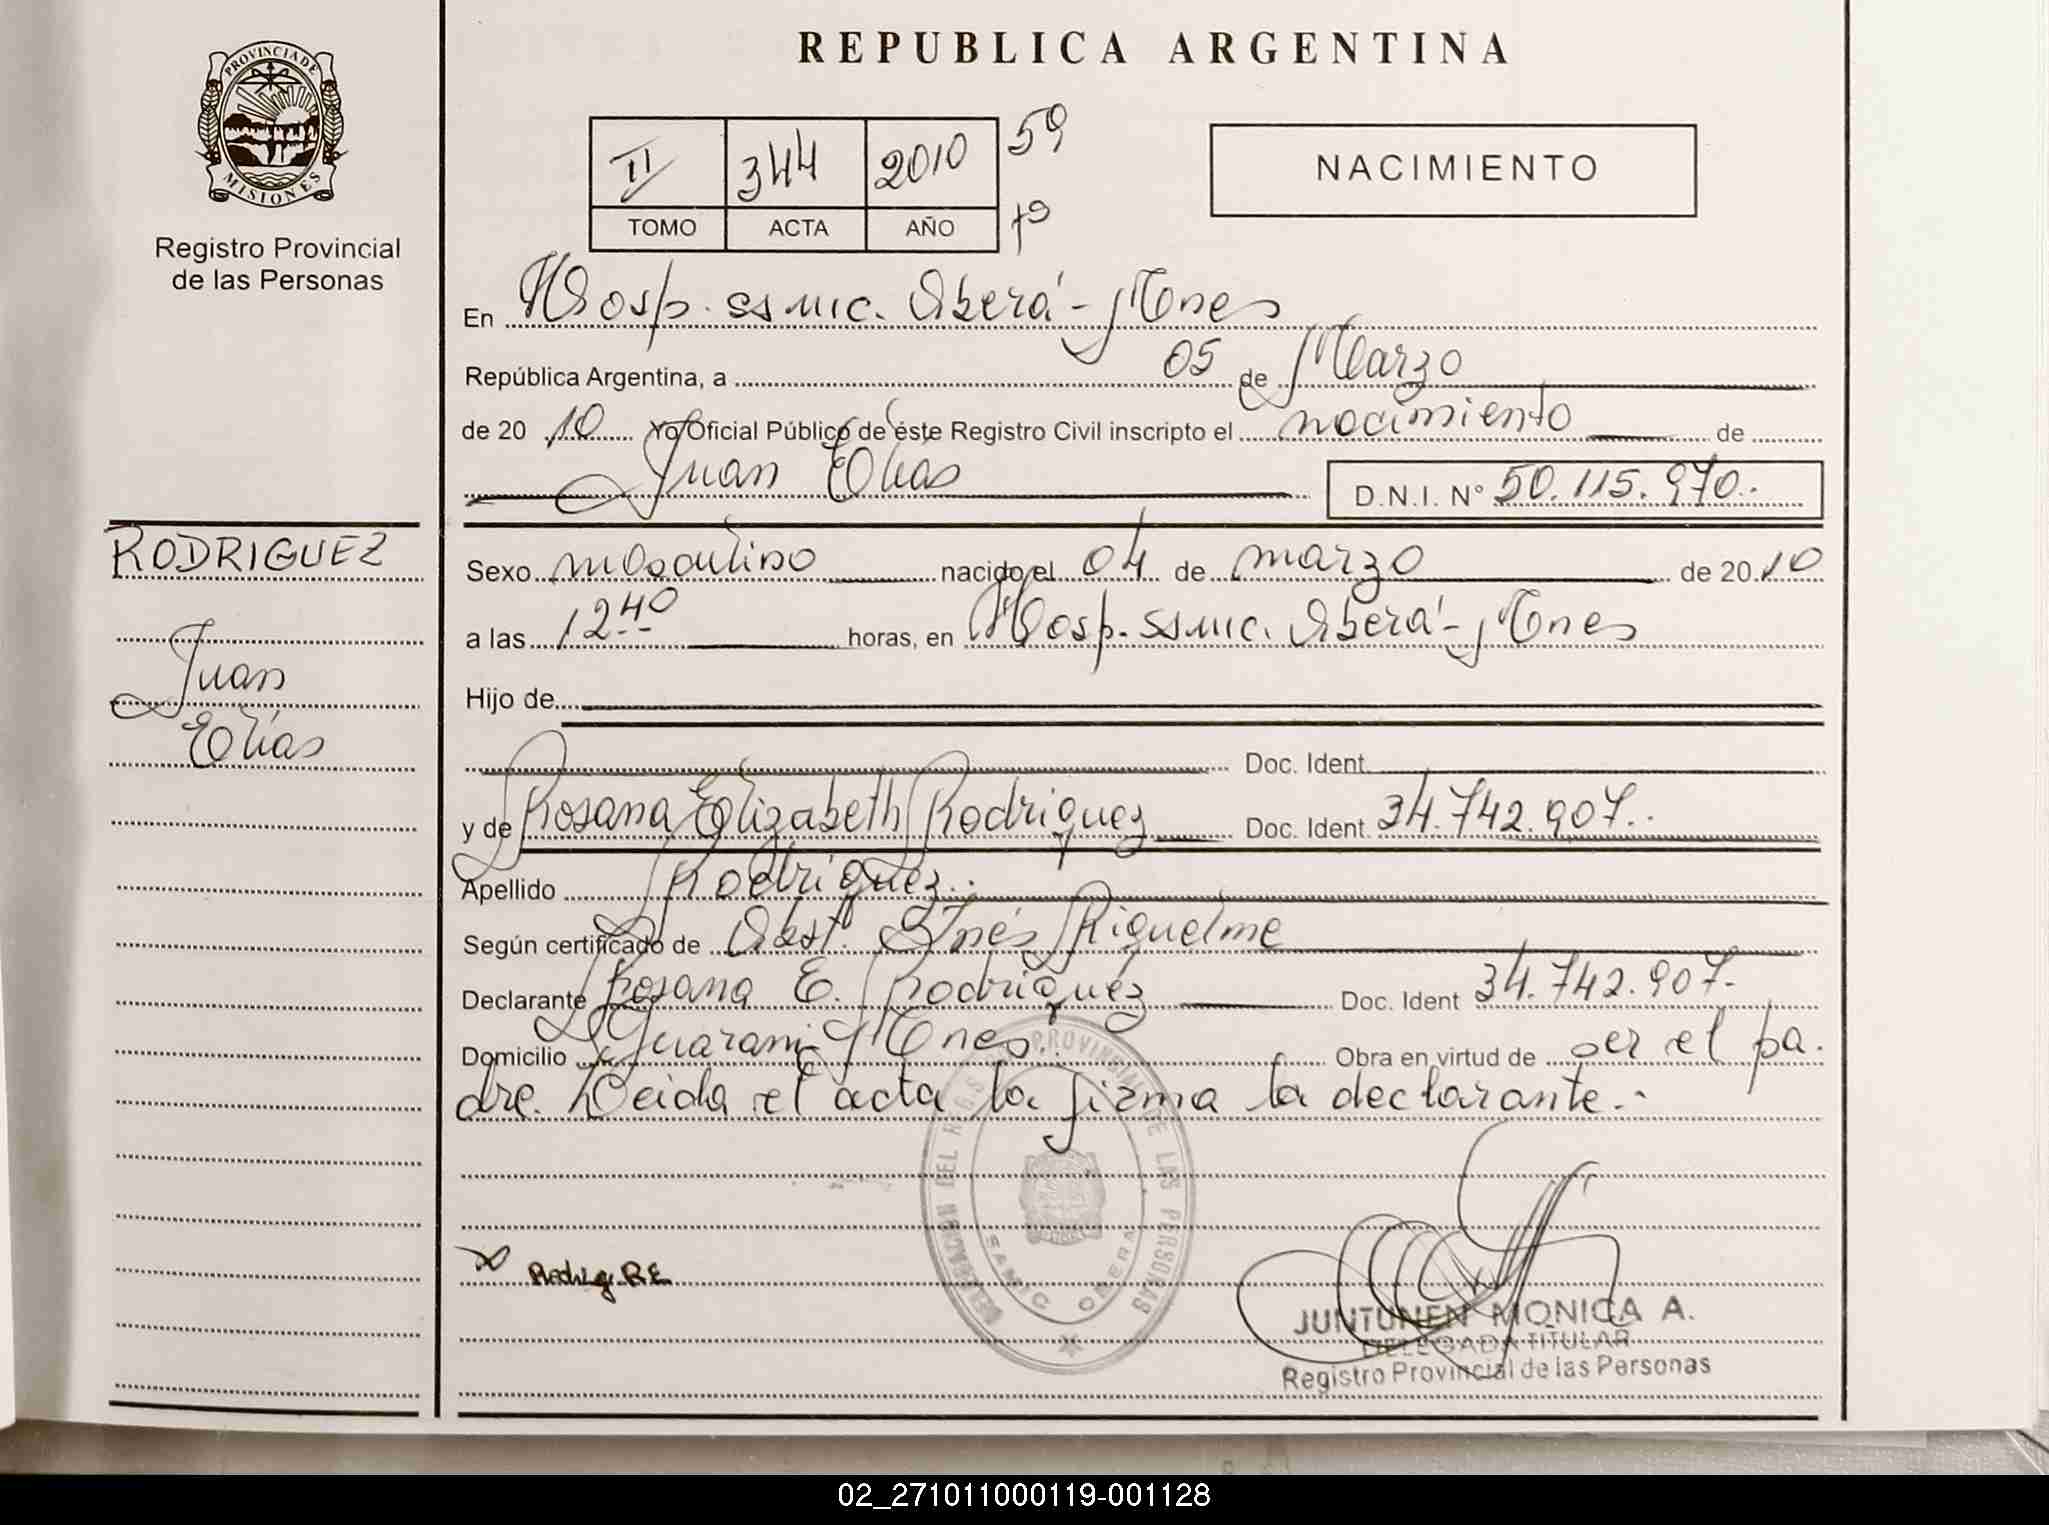 REPUBLICA ARGENTINA
PROVINCIA DE
MISIONES
Registro Provincial
de las Personas
II 344 2010 59
TOMO ACTA AÑO
NACIMIENTO
En Hosp. ssmic. Oberá - Mnes
República Argentina, a 05 de Marzo
de 20 10 Yo Oficial Público de éste Registro Civil inscripto el nacimiento de
Juan Elias D.N.I. N° 50.115.970.-
RODRIGUEZ
Juan
Elias
Sexo masculino nacido el 04 de marzo de 20 10
a las 12.40 horas, en Hosp. ssmic. Oberá - Mnes
Hijo de
Doc. Ident.
y de Rosana Elizabeth Rodriguez Doc. Ident. 34.742.907.-
Apellido Rodriguez.-
Según certificado de Obst. Inés Riquelme
Declarante Rosana E. Rodriguez Doc. Ident 34.742.907.-
Domicilio Guarani - Mnes.- Obra en virtud de ser el pa-
dre. Leida el acta la firma la declarante.-
DELEGACION DEL REG. PROVINCIAL DE LAS PERSONAS
SAMIC OBERA
Rodrig R.E
JUNTUNEN MONICA A.
DELEGADA TITULAR
Registro Provincial de las Personas
02_271011000119-001128